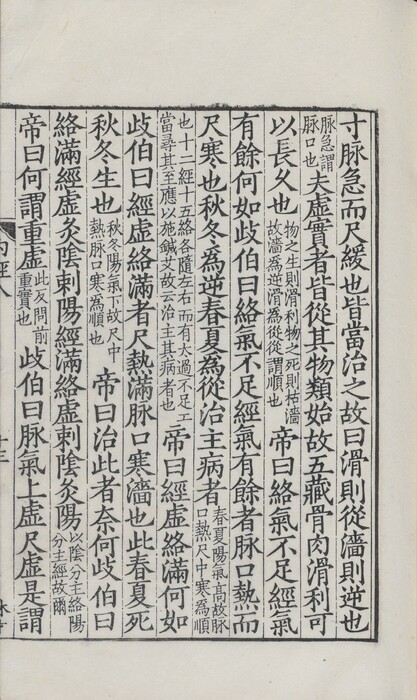 寸脉急而尺緩也皆當治之故曰滑則從濇則逆也
脉急謂脉口也夫虛實者皆從其物類始故五藏骨肉滑利可
以長久也物之生則滑利物之死則枯濇故濇為逆滑為從從謂順也帝曰絡氣不足經氣
有餘何如歧伯曰絡氣不足經氣有餘者脉口熱而
尺寒也秋冬為逆春夏為從治主病者春夏陽氣高故脉口熱尺中寒為順
也十二經十五絡各隨左右而有太過不足工當尋其至應以施鍼艾故云治主其病者也帝曰經虛絡滿何如
歧伯曰經虛絡滿者尺熱滿脉口寒濇也此春夏死
秋冬生也秋冬陽氣下故尺中熱脉口寒為順也帝曰治此者奈何歧伯曰
絡滿經虛灸陰刺陽經滿絡虛刺陰灸陽以陰分主絡陽分主經故爾
帝曰何謂重虛此反問前重實也歧伯曰脉氣上虛尺虛是謂